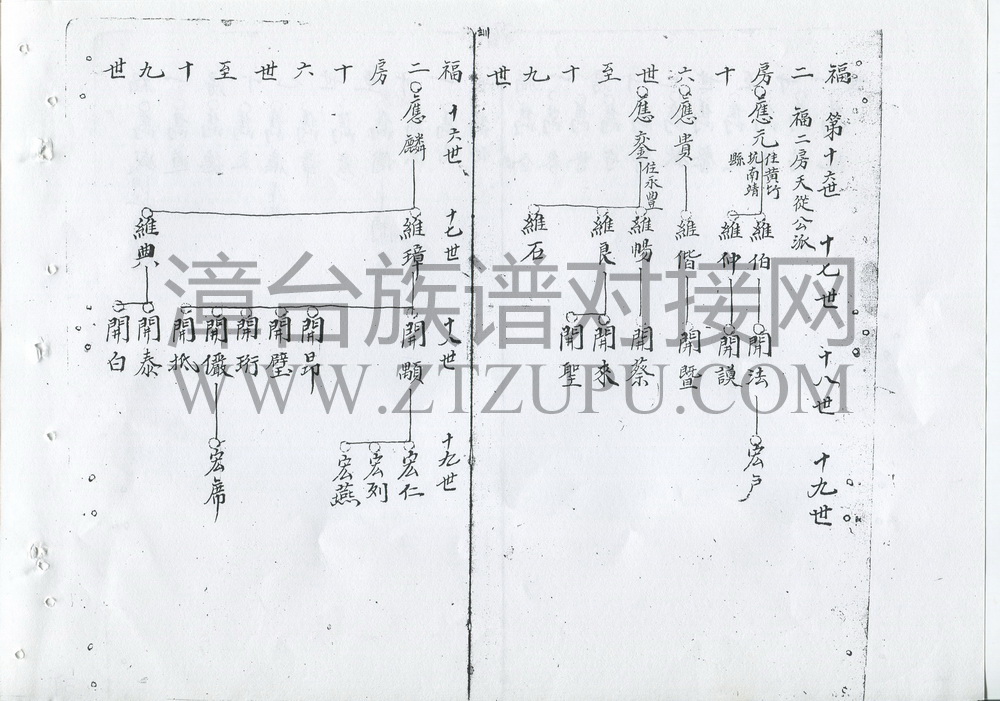 福二房十六世至十九世
第十六世
十七世
十八世
十九世
福二房天從公派
應元
住黄竹
坑南靖
縣
維伯
維仲
開法
開謨
宏户
應貴
維偕
開暨
應奎
住永豐
維暢
維良
維石
開蔡
開來
開聖
福二房十六世至十九世
十六世
十七世
十八世
十九世
應麟
維璋
維典
開顯
開昂
開璧
開珩
開儼
開抵
開泰
開白
宏仁
宏列
宏燕
宏席
漳台族谱对接网
WWW.ZTZUPU.COM